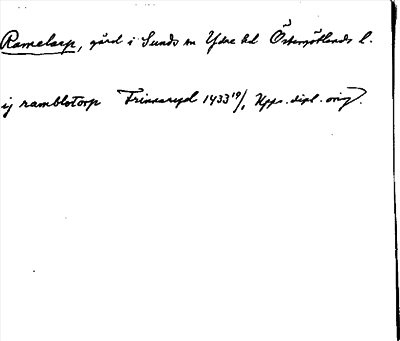 Ramelarp, gård i Sunds sn Ydre hd Östergötlands l.
ij ramblotorp Frinnaryd 1433 19/1 Upps. dipl. orig.